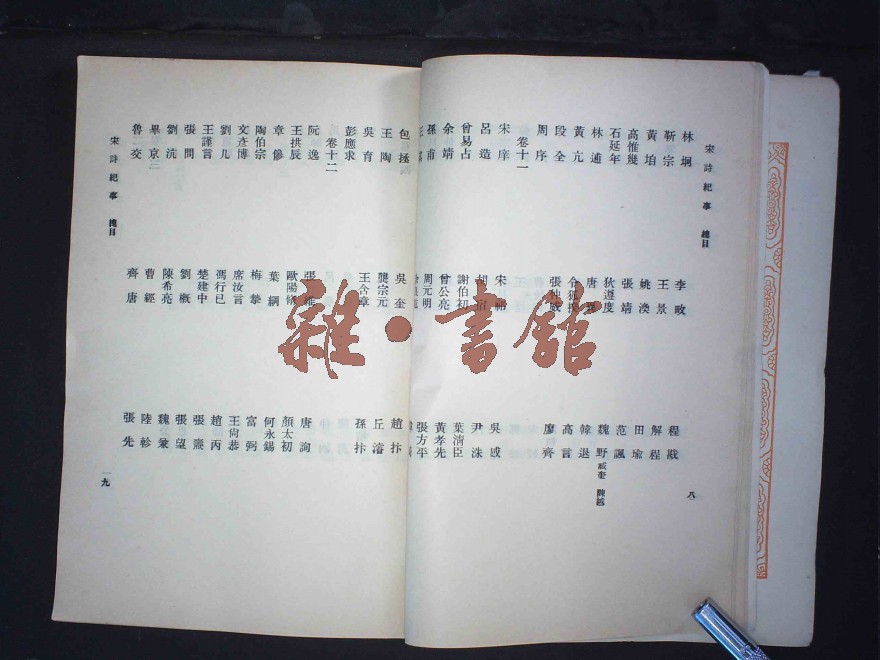 宋詩紀事 總目
八
林坰
靳宗
黃垍
高惟幾
石延年
林逋
黃亢
段全
周序
卷十一
宋庠
呂造
曾易占
余靖
孫甫
李畋
王景
姚渙
張靖
狄遵度
唐
令狐
張
宋祁
胡宿
謝伯初
曾公亮
周元明
程戡
解程
田瑜
范諷
魏野 臧奎 陳越
韓退
高言
廖齊
吳感
尹洙
葉清臣
黃孝先
張方平
包拯
王陶
吳育
彭應求
卷十二
阮逸
王拱辰
章修
陶伯宗
文彥博
劉几
王謹言
張問
劉沆
畢京
魯交
吳奎
龔宗元
王含章
張維
歐陽脩
葉綱
梅摯
席汝言
馮行已
楚建中
劉概
陳希亮
曹經
齊唐
趙抃
丘濬
孫抃
唐詢
顏太初
何永錫
富弼
王尚恭
趙丙
張燾
張望
魏兼
陸軫
張先
宋詩紀事 總目
一九
雜·書館